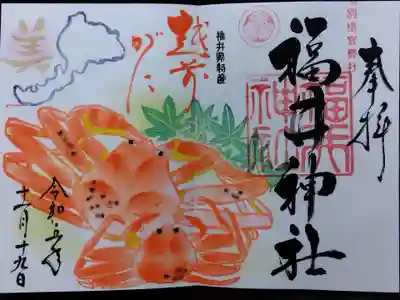 奉拝
別格官幣社
福井神社
福井神社
福井県特産
越前
がに
美
令和五年
十一月十九日